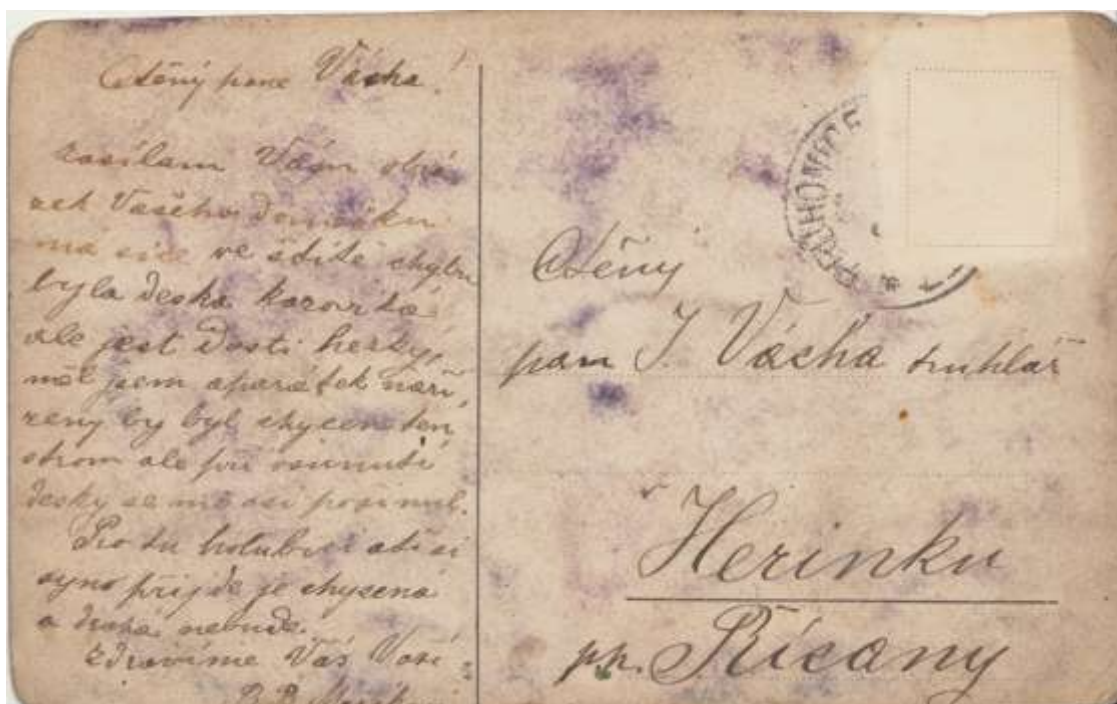 Ctěný pane Vácha!
zasílam Vám obrá
zek Vašeho domečku
ma sice ve štítě chybu
byla deska kazovitá,
ale jest dosti hezky,
měl jsem aparátek naří
zený by byl chycen ten
strom ale při osunutí
desky se mě asi pošinul.
Pro tu holubici ať si
syno přijde je chycená
a drahá nebude.
Zdravíme Vás Vaši
PRŮHONICE
Ctěný
pan J. Vácha truhlář
v
Herinku
pp. Řícany